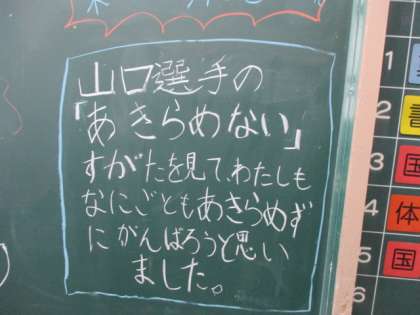 山口選手の
「あきらめない」
すがたを見て、わたしも
なにごともあきらめず
にがんばろうと思い
ました。
1
2
3 国
4 体
5 国